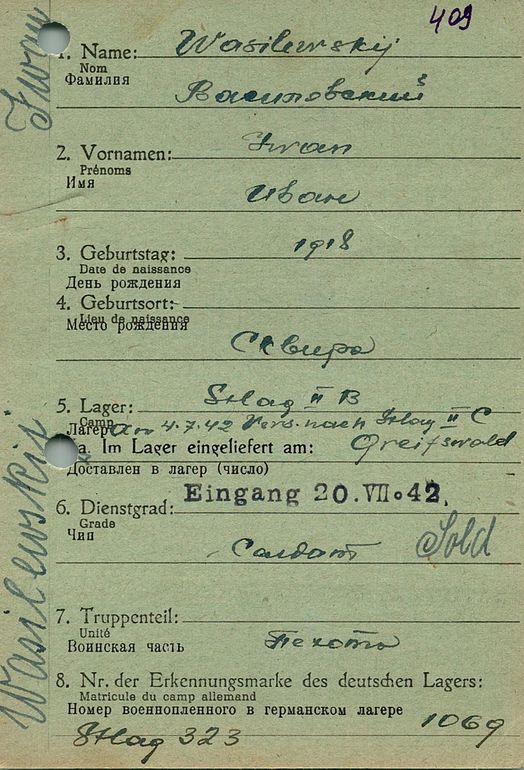 409
Iwan
1. Name: Wasilewskij
Nom
Фамилия
Василовский
2. Vornamen: Iwan
Prénoms
Имя
Иван
3. Geburtstag: 1918
Date de naissance
День рождения
4. Geburtsort:
Lieu de naissance
Место рождения
Сквира
5. Lager: Stlag II B
Camp
Лагерь Am 4.7.42 Vers. nach Stlag II C
a. Im Lager eingeliefert am: Greifswald
Доставлен в лагерь (число)
Eingang 20. VII. 42.
6. Dienstgrad:
Grade
Чин
Солдат Sold
7. Truppenteil:
Unité
Воинская часть Пехота
8. Nr. der Erkennungsmarke des deutschen Lagers:
Matricule du camp allemand
Номер военнопленного в германском лагере
Stlag 323 1069
Wasilewskij